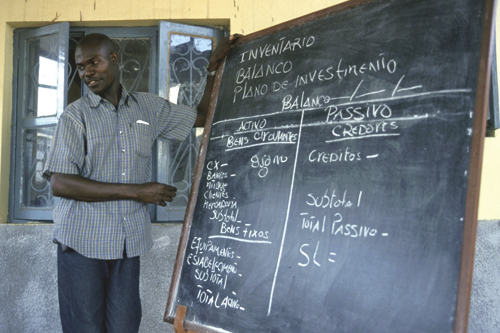 INVENTARIO
BALANCO
PLANO DE INVESTIMENTO
BALANCO __/__/__
ACTIVO
BENS CIRCULANTES
CX -
BANCOS -
Clientes
MERCADORIA
Subtotal
BENS FIXOS
EQUIPAMENTOS -
ESTABELECIMENTO -
SUBTOTAL
TOTAL ACTIVO -
PASSIVO
CREDORES
CREDITOS -
Subtotal
TOTAL PASSIVO -
SL =